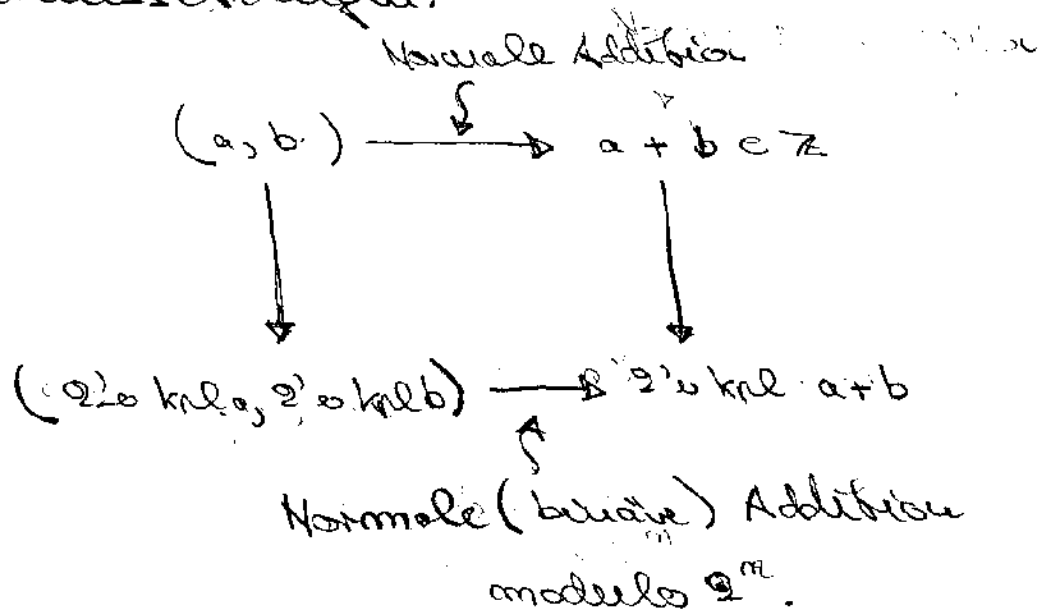 Normale Addition
(a, b) → a + b ∈ ℤ
(2's kpl a, 2's kpl b) → 2's kpl a+b
Normale (binäre) Addition
modulo 2ⁿ.